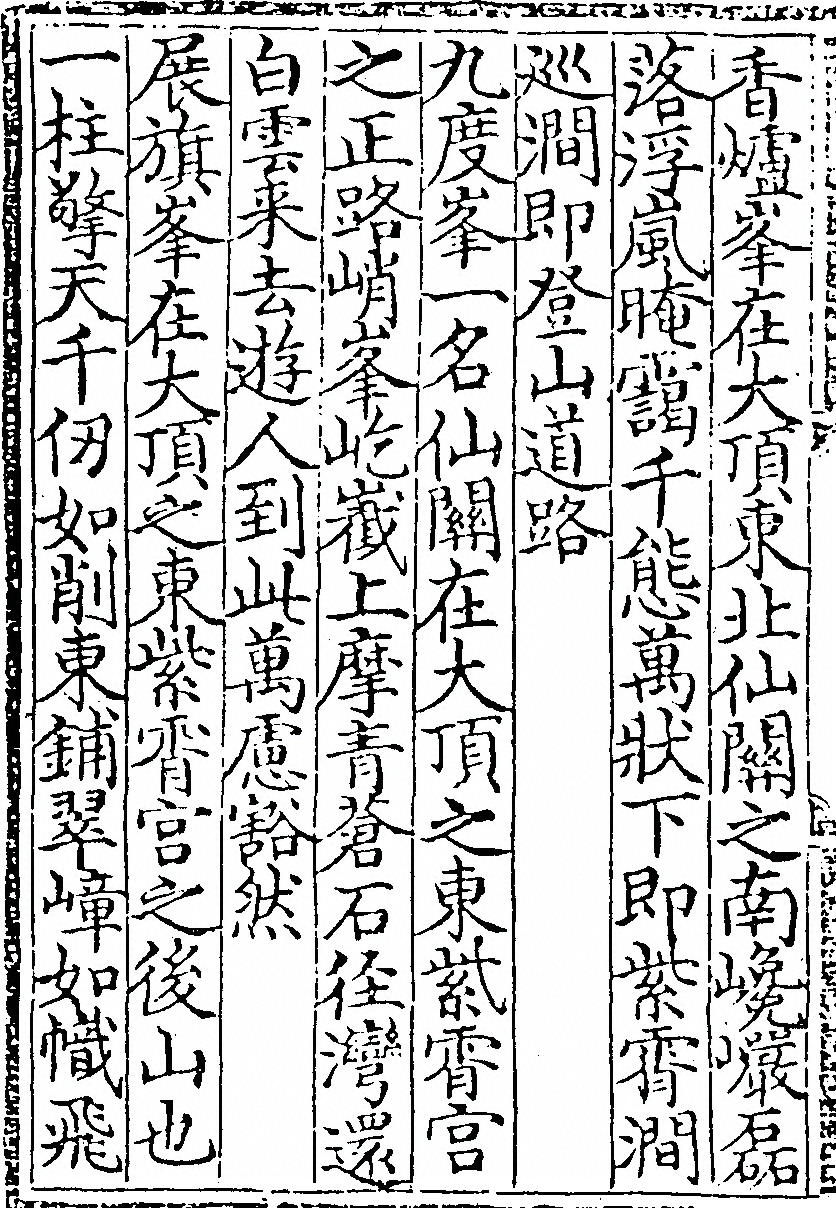 香爐峯在大頂東北仙關之南巉巖磊
落浮嵐晻靄千態萬狀下即紫霄澗
巡澗即登山道路
九度峯一名仙關在大頂之東紫霄宫
之正路峭峯屹嶻上摩青蒼石徑灣還
白雲来去遊人到此萬慮豁然
展旗峯在大頂之東紫霄宫之後山也
一柱擎天千仞如削東鋪翠嶂如幟飛